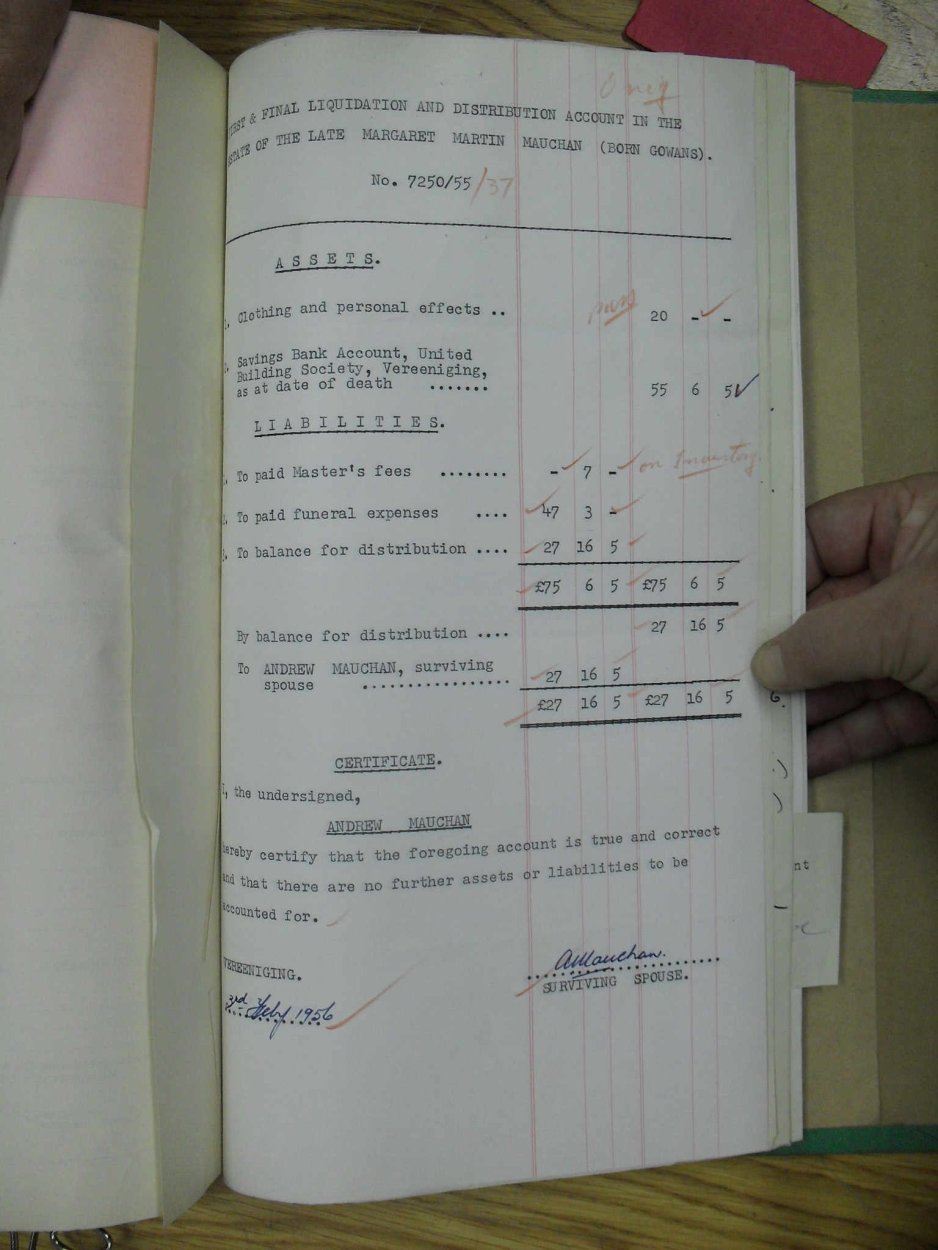 Orig
FIRST & FINAL LIQUIDATION AND DISTRIBUTION ACCOUNT IN THE
ESTATE OF THE LATE MARGARET MARTIN MAUCHAN (BORN GOWANS).
No. 7250/55/37
ASSETS.
Clothing and personal effects .. 20 - -
Savings Bank Account, United
Building Society, Vereeniging,
as at date of death ....... 55 6 5
LIABILITIES.
To paid Master's fees ........ - 7 - on Inventory.
To paid funeral expenses .... 47 3 -
To balance for distribution .... 27 16 5
£75 6 5 £75 6 5
By balance for distribution .... 27 16 5
To ANDREW MAUCHAN, surviving
spouse ................. 27 16 5
£27 16 5 £27 16 5
CERTIFICATE.
I, the undersigned,
ANDREW MAUCHAN
hereby certify that the foregoing account is true and correct
and that there are no further assets or liabilities to be
accounted for.
VEREENIGING.
3rd Feby 1956
AMauchan.
SURVIVING SPOUSE.